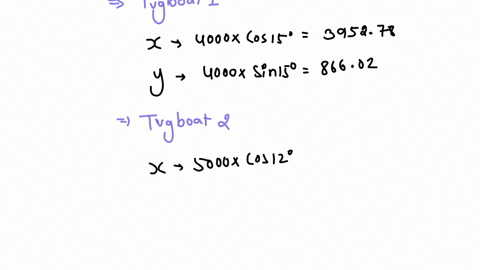 ⇒ Tugboat 1
x → 4000x Cos15° = 3952.78
y → 4000x Sin15° = 866.02
⇒ Tugboat 2
x → 5000x Cos12°